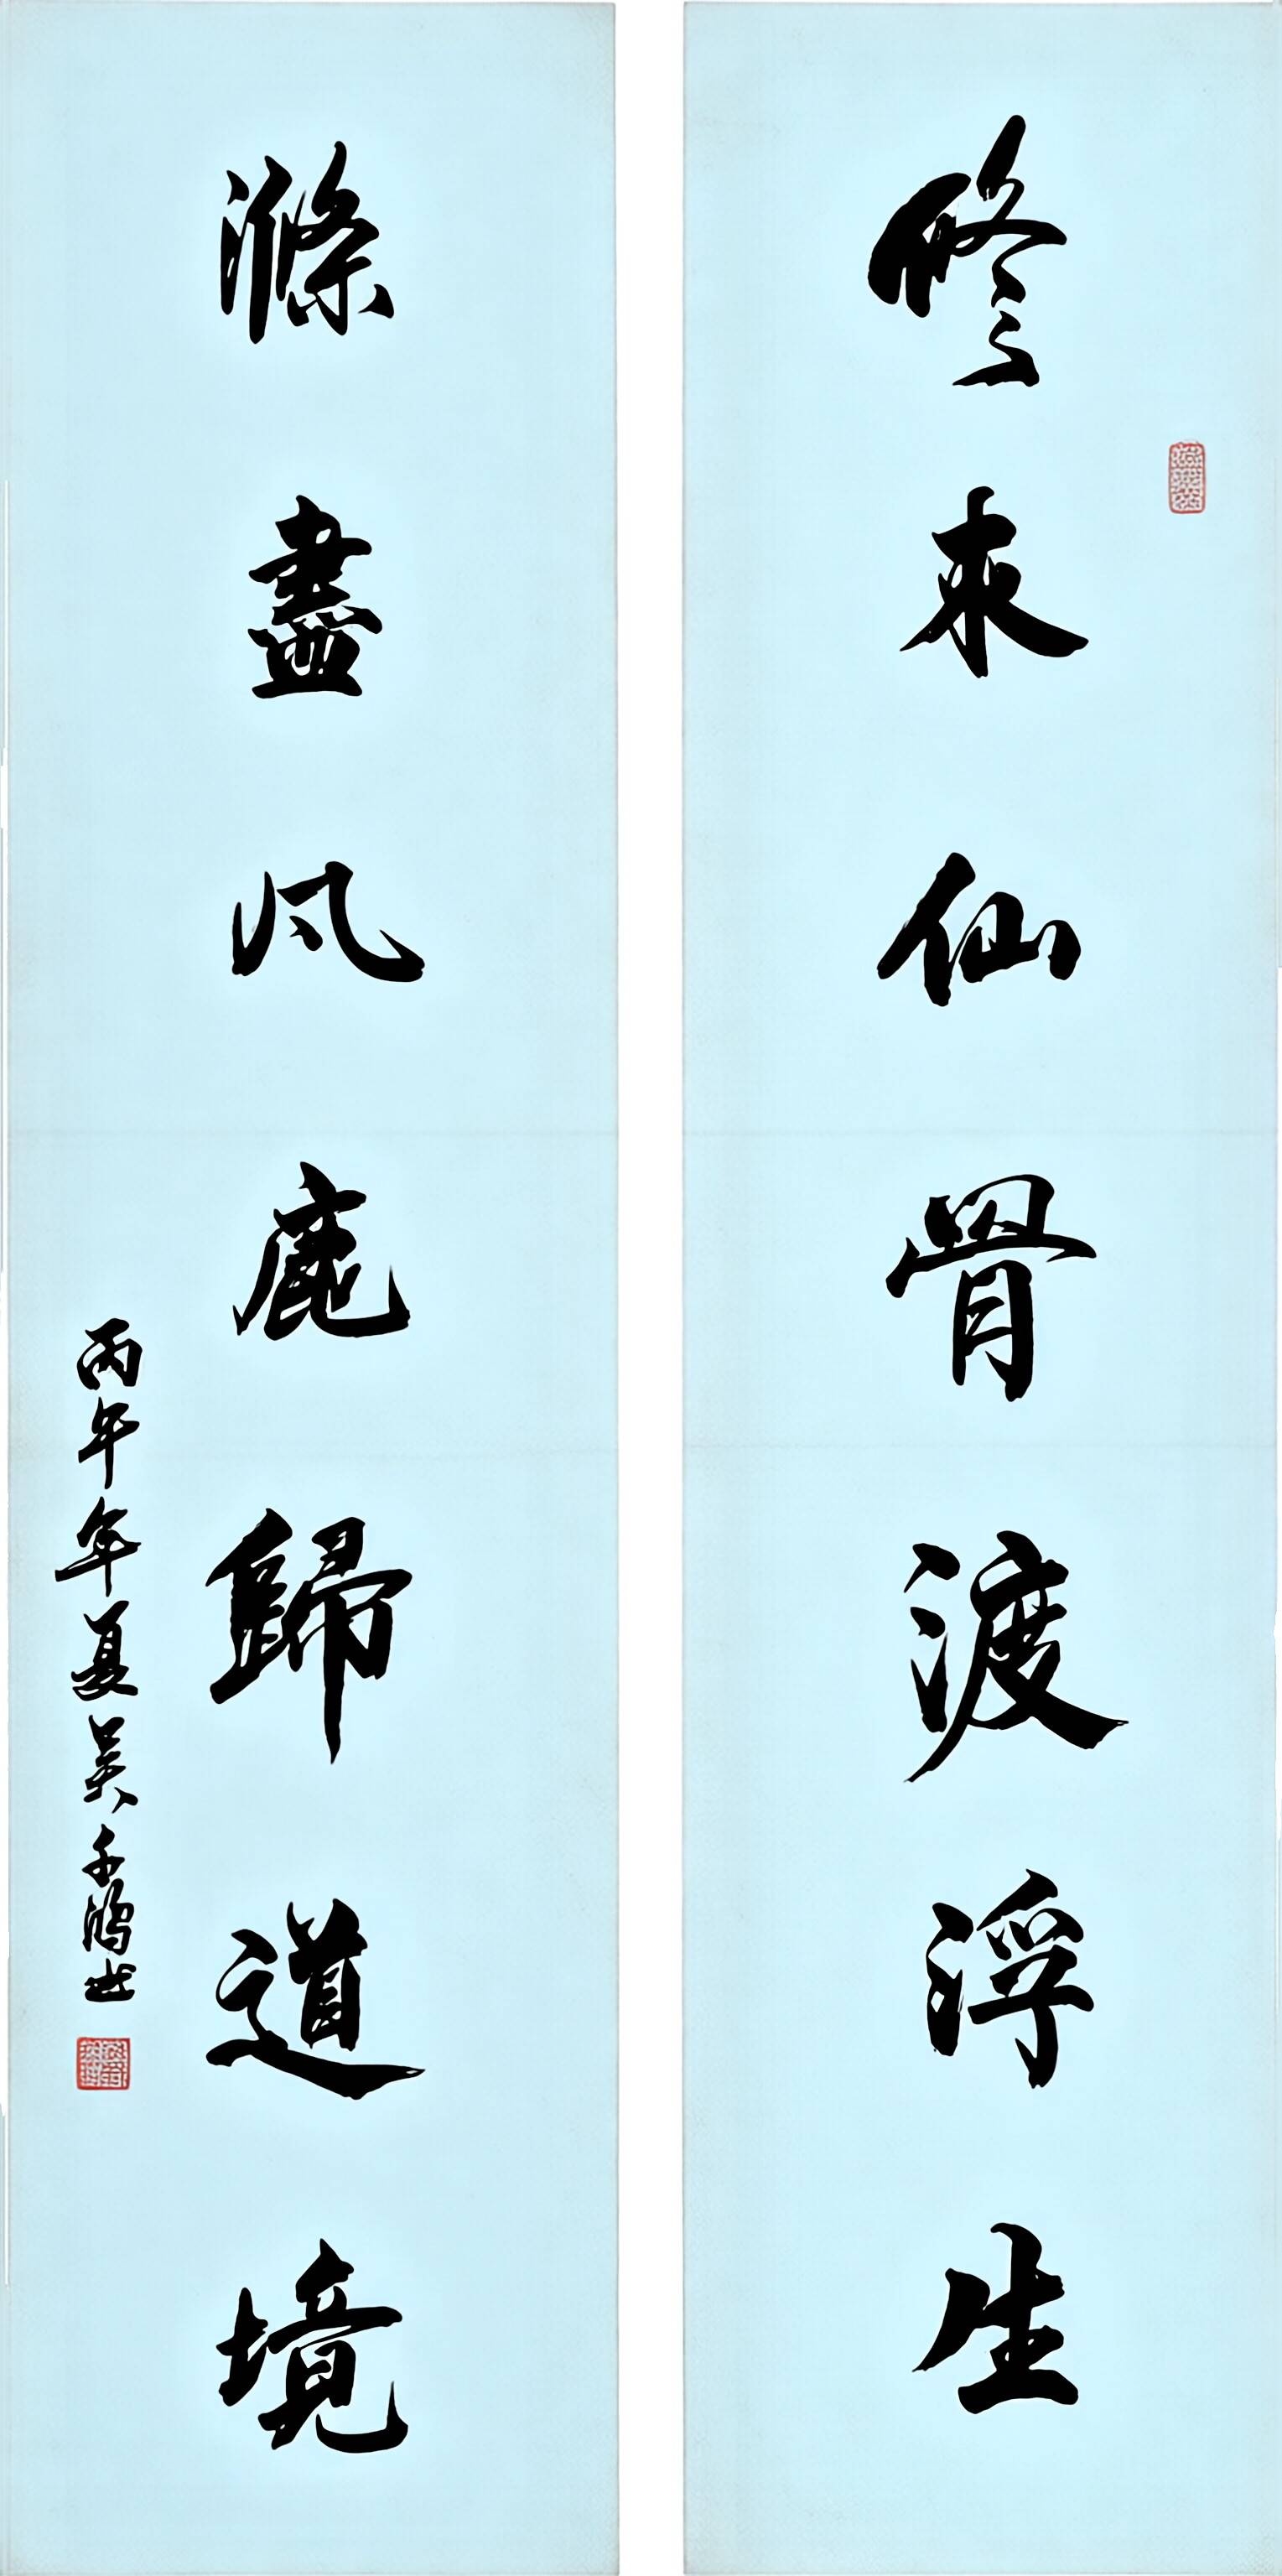 修來仙骨渡浮生
滌盡風塵歸道境
丙午年夏吴千鴻书